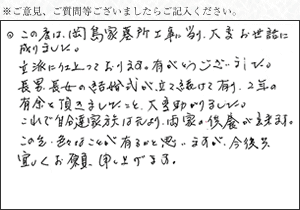 ※ご意見、ご質問等ございましたらご記入ください。
◎ この度は、岡島家墓所工事に当り、大変お世話に
成りました。
立派に仕上っております。有がとうございました。
長男、長女の結婚式が立て続けて有り、2年の
有余を頂きましたこと、大変助かりました。
これで自分達家族は元より、両家の供養が出来ます。
この先、色々なことが有るかと思いますが、今後共
宜しくお願い申し上げます。